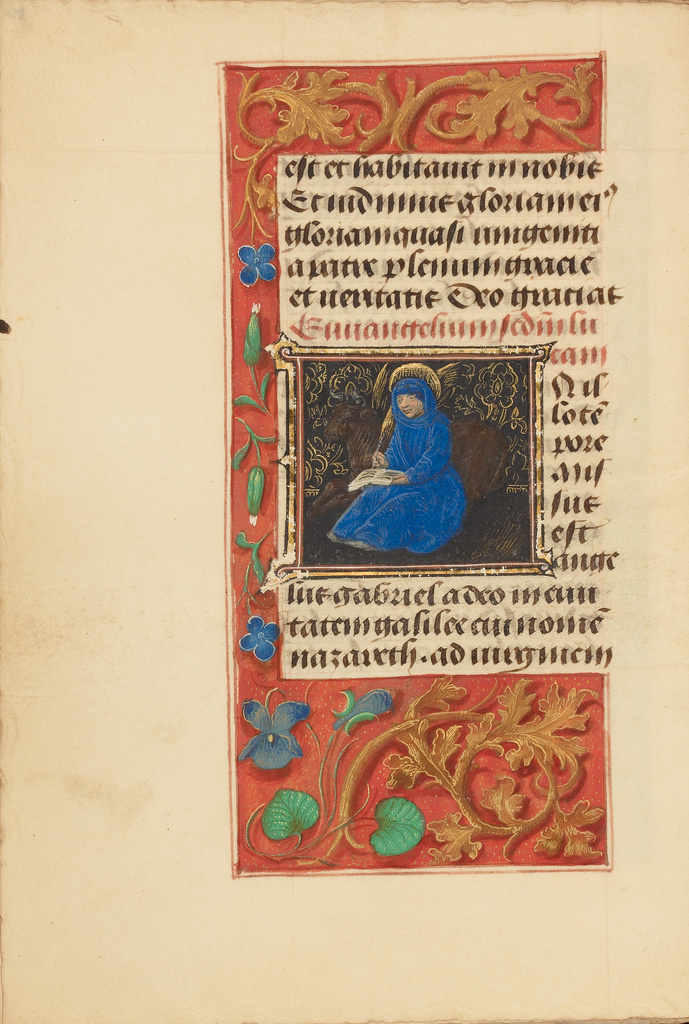 est et habitauit in nobis
Et uidimus gloriam eiꝰ
gloriam quasi unigeniti
a patre plenum gracie
et ueritatis Deo gracias
Euuangelium scdm̄ lu
cam
N il
lo tē
pore
Mis
sus
est
ange
lus gabriel a deo in ciui
tatem galilee cui nomē
nazareth. ad uirginem